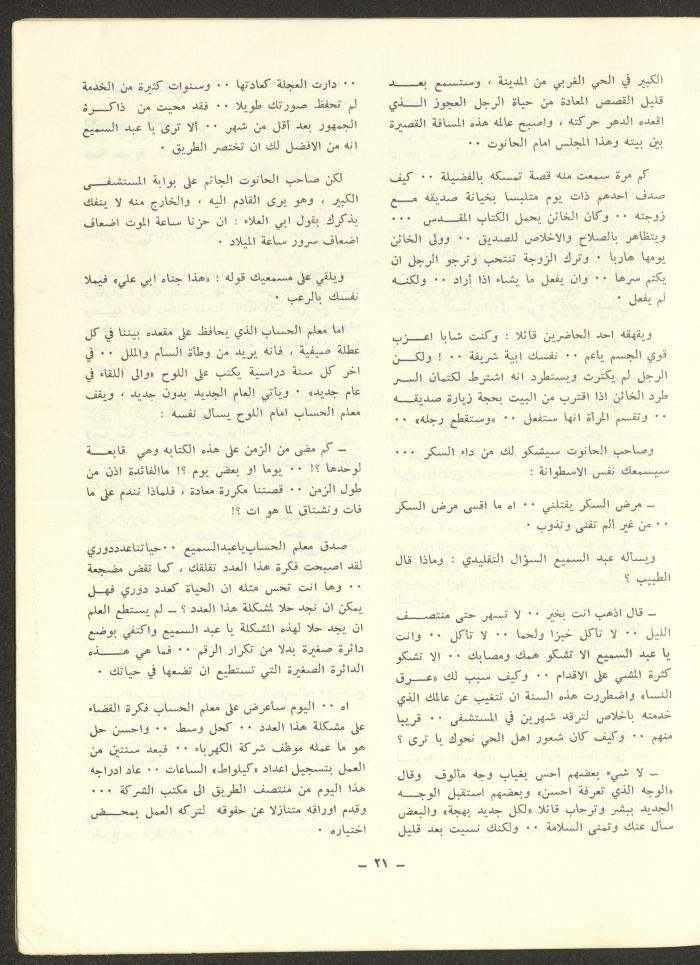 الكبير في الحي الغربي من المدينة ، وستسمع بعـــد
قليل القصص المعادة من حياة الرجل العجوز الـــذي
اقعده الدهر حركته ، واصبح عالمه هذه المسافة القصيرة
بين بيته وهذا المجلس امام الحانوت ٠٠
كم مرة سمعت منه قصة تمسكه بالفضيلة ٠٠ كيف
صدف احدهم ذات يوم متلبسا بخيانة صديقه مـــع
زوجته ٠٠ وكان الخائن يحمل الكتاب المقـــدس ٠٠٠
ويتظاهر بالصلاح والاخلاص للصديق ٠٠ وولى الخائن
يومها هاربا ٠ وترك الزوجة تنتحب وترجو الرجل ان
يكتم سرها ٠٠ وان يفعل ما يشاء اذا أراد ٠٠ ولكنــه
لم يفعل ٠
ويقهقه احد الحاضرين قائلا : وكنت شابا اعـــزب
قوي الجسم ياعم ٠٠ نفسك ابية شريفة ٠٠ ! ولكـــن
الرجل لم يكترث ويستطرد انه اشترط لكتمان الســر
طرد الخائن اذا اقترب من البيت بحجة زيارة صديقــه
٠٠ وتقسم المرأة انها ستفعل ٠٠ «وستقطع رجله» ٠٠
وصاحب الحانوت سيشكو لك من داء السكر ٠٠٠
سيسمعك نفس الاسطوانة :
ــ مرض السكر يقتلني ٠٠ اه ما اقسى مرض السكر
٠٠ من غير ألم تفنى وتذوب ٠
ويساله عبد السميع السؤال التقليدي : وماذا قال
الطبيب ؟
ــ قال اذهب انت بخير ٠٠ لا تسهر حتى منتصــف
الليل ٠٠ لا تاكل خبزا ولحما ٠٠ لا تاكل ٠٠ وانت
يا عبد السميع الا تشكو همك ومصابك ٠٠ الا تشكو
كثرة المشي على الاقدام ٠٠ وكيف سبب لك «عـــرق
النساء» واضطررت هذه السنة ان تتغيب عن عالمك الذي
خدمته باخلاص لترقد شهرين في المستشفى ٠٠ قريبا
منهم ٠٠ وكيف كان شعور اهل الحي نحوك يا ترى ؟
ــ لا شيء بعضهم أحس بغياب وجه مألوف وقال
«الوجه الذي تعرفة احسن» وبعضهم استقبل الوجــه
الجديد ببشر وترحاب قائلا «لكل جديد بهجة» والبعض
سأل عنك وتمنى السلامة ٠٠ ولكنك نسيت بعد قليل
٠٠ دارت العجلة كعادتها ٠٠ وسنوات كثيرة من الخدمة
لم تحفظ صورتك طويلا ٠٠ فقد محيت من ذاكــرة
الجمهور بعد أقل من شهر ٠٠ ألا ترى يا عبد السميع
انه من الافضل لك ان تختصر الطريق ٠
لكن صاحب الحانوت الجاثم على بوابة المستشفــى
الكبير ، وهو يرى القادم اليه ، والخارج منه لا ينفك
يذكرك بقول ابي العلاء : ان حزنا ساعة الموت اضعاف
اضعاف سرور ساعة الميلاد ٠
ويلقي على مسمعيك قوله : «هذا جناه ابي علي» فيملا
نفسك بالرعب ٠
اما معلم الحساب الذي يحافظ على مقعده بيننا في كل
عطلة صيفية ، فانه يريد من وطاة السام والملل ٠٠ في
اخر كل سنة دراسية يكتب على اللوح «والى اللقاء في
عام جديد» ٠ ويأتي العام الجديد بدون جديد ، ويقف
معلم الحساب امام اللوح يسال نفسه :
ــ كم مضى من الزمن على هذه الكتابه وهي قابعــة
لوحدها ؟! ٠٠ يوما او بعض يوم ؟! ماالفائدة اذن من
طول الزمن ٠٠ قصتنا مكررة معادة ، فلماذا نندم على ما
فات ونشتاق لما هو ات ؟!
صدق معلم الحساب ياعبدالسميع ٠٠حياتناعدددوري
لقد اصبحت فكرة هذا العدد تقلقك ، كما تقض مضجعة
٠٠ وها انت تحس مثله ان الحياة كعدد دوري فهــل
يمكن ان نجد حلا لمشكلة هذا العدد ؟ ــ لم يستطع العلم
ان يجد حلا لهذه المشكلة يا عبد السميع واكتفي بوضع
دائرة صغيرة بدلا من تكرار الرقم ٠٠ فما هي هـــذه
الدائرة الصغيرة التي تستطيع ان تضعها في حياتك ٠
اه ٠٠ اليوم ساعرض على معلم الحساب فكرة القضاء
على مشكلة هذا العدد ٠٠ كحل وسط ٠٠ واحسن حل
هو ما عمله موظف شركة الكهرباء ٠٠ فبعد سنتين من
العمل بتسجيل اعداد «كيلواط» الساعات ٠٠ عاد ادراجه
هذا اليوم من منتصف الطريق الى مكتب الشركة ٠٠٠
وقدم اوراقه متنازلا عن حقوقه لتركه العمل بمحــض
اختياره ٠
ــ ٢١ ــ